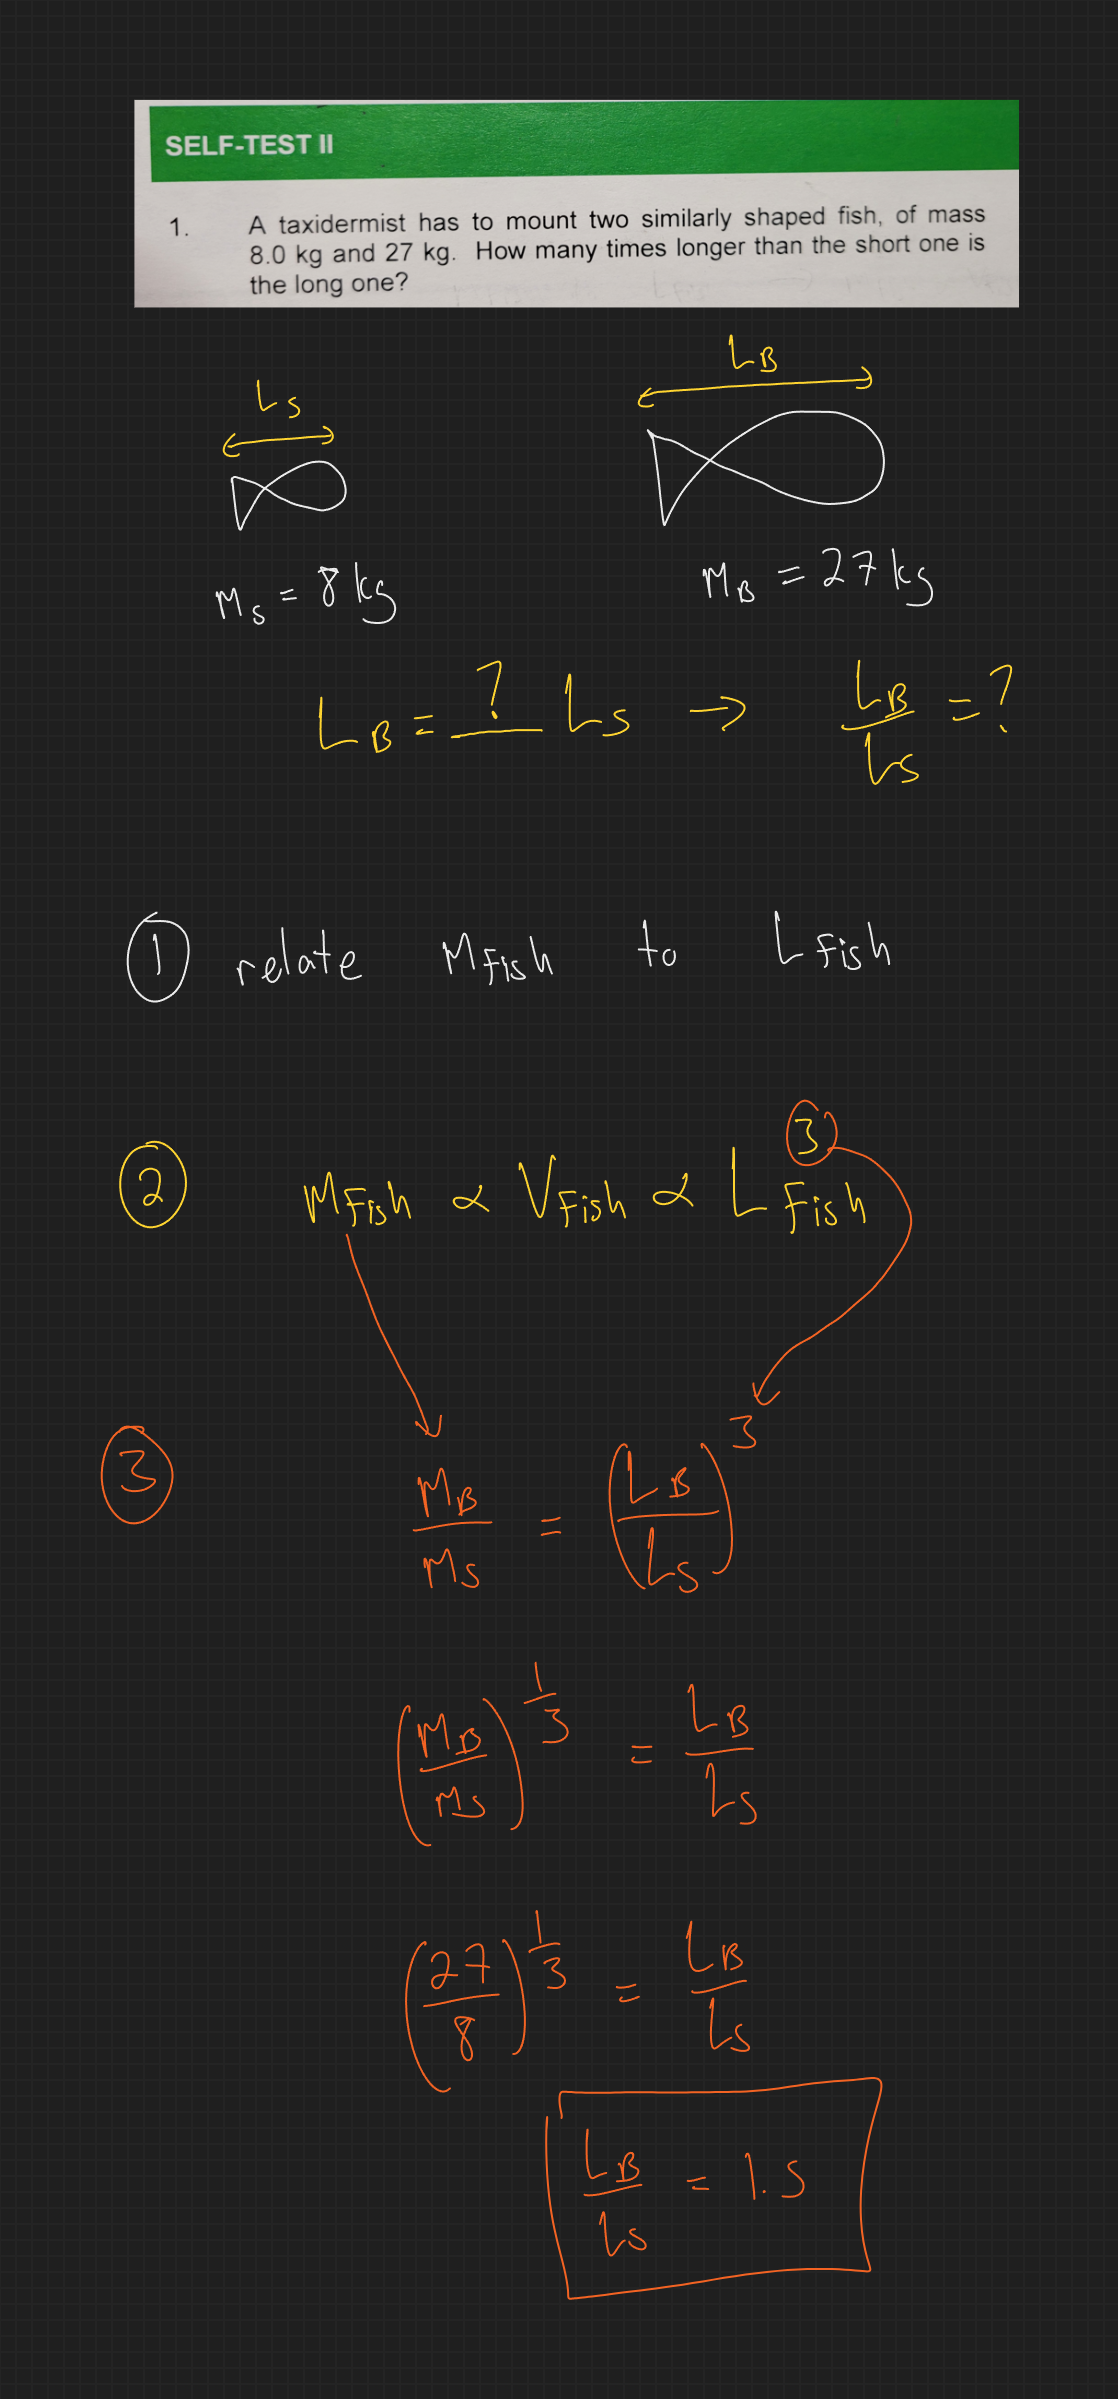 SELF-TEST II
1. A taxidermist has to mount two similarly shaped fish, of mass
8.0 kg and 27 kg. How many times longer than the short one is
the long one?
L_S
L_B
M_S = 8 kg
M_B = 27 kg
L_B = ? L_S → L_B/L_S = ?
① relate M_Fish to L_Fish
② M_Fish ∝ V_Fish ∝ L_Fish^3
③ M_B/M_S = (L_B/L_S)^3
(M_B/M_S)^(1/3) = L_B/L_S
(27/8)^(1/3) = L_B/L_S
L_B/L_S = 1.5